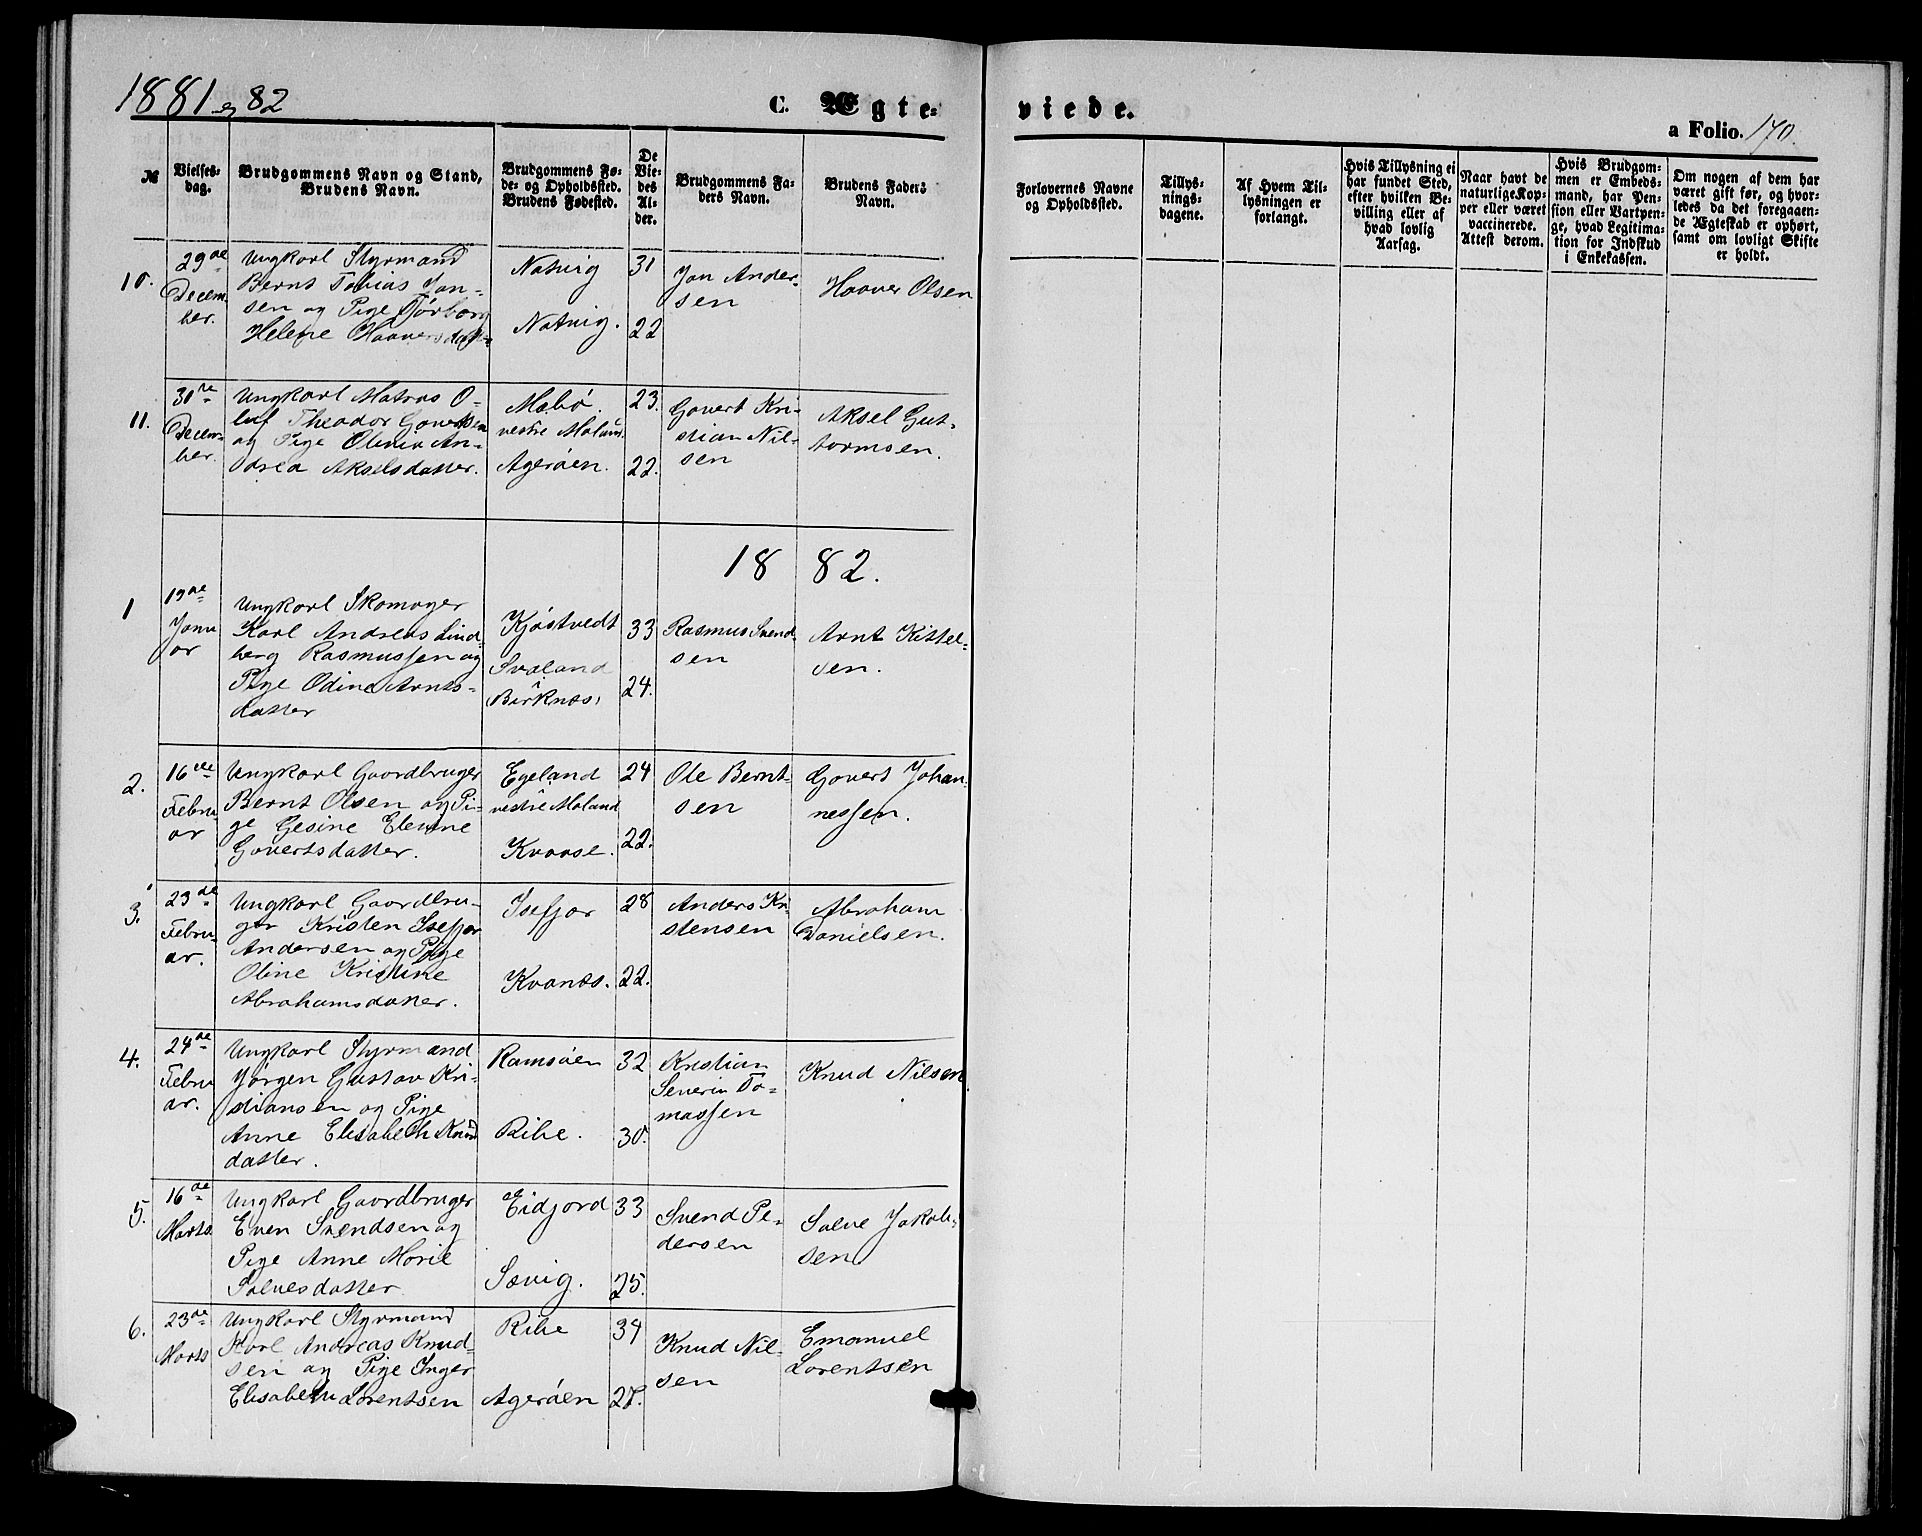 1881 og 82
C. Ægte-
viede.
a Folio. 170.
№
Vielses-
dag.
Brudgommens Navn og Stand,
Brudens Navn.
Brudgommens Fø-
de- og Opholdssted.
Brudens Fødested.
De
Vie-
des
Al-
der.
Brudgommens Fa-
ders Navn.
Brudens Faders
Navn.
Forlovernes Navne
og Opholdssted.
Tillys-
nings-
dagene.
Af Hvem Til-
lysningen er
forlangt.
Hvis Tillysning ei
har fundet Sted,
efter hvilken Be-
villing eller af
hvad lovlig
Aarsag.
Naar havt de
naturlige Kop-
per eller været
vaccinerede.
Attest derom.
Hvis Brudgom-
men er Embeds-
mand, har Pen-
sion eller Vartpen-
ge, hvad Legitima-
tion for Indskud
i Enkekassen.
Om nogen af dem har
været gift før, og hvor-
ledes da det foregaaen-
de Ægteskab er ophørt,
samt om lovligt Skifte
er holdt.
10.
29de
Decem
ber.
Ungkarl Styrmand
Bernt Tobias Jan-
sen og Pige Torborg
Helene Haaversdatter
Natvig
Natvig.
31
22
Jan Ander-
sen
Haaver Olsen
11.
31te
Decem-
ber.
Ungkarl Matros O-
luf Theodor Govertsen
og Pige Olivia An-
drea Akselsdatter.
Mæbø.
vestre Moland.
Agerøen.
23.
22.
Govert Kri-
stian Nil-
sen
Aksel Gut-
tormsen.
1882.
1
19de
Janu
ar
Ungkarl Skomager
Karl Andreas Lind
berg Rasmussen og
Pige Odine Arnts-
datter
Kjøstvedt
Svaland
Birknæs,
33
24.
Rasmus Svend
sen
Arnt Kittel-
sen.
2.
16de
Febru
ar
Ungkarl Gaardbruger
Bernt Olsen og Pi-
ge Gesine Elevine
Govertsdatter.
Egeland
vestre Moland
Kvaase.
24
22.
Ole Bernt-
sen
Govert Johan
nessen.
3.
23de
Febru-
ar.
Ungkarl Gaardbru-
ger Kristen Isefjær
Andersen og Pige
Oline Kristine
Abrahamsdatter.
Isefjær
Kvanæs.
28
22.
Anders Kri
stensen
Abraham
Danielsen.
4.
24de
Febru
ar.
Ungkarl Styrmand
Jørgen Gustav Kri-
stiansen og Pige
Anne Elisabeth Knud
datter.
Ramsøen
Ribe.
32
30.
Kristian
Severin To-
massen
Knud Nilsen
5.
16de
Marts.
Ungkarl Gaardbruger
Even Svendsen og
Pige Anne Marie
Salvesdatter.
Eidjord
Sævig.
33
25.
Svend Pe-
dersen
Salve Jakob-
sen
6.
23de
Marts
Ungkarl Styrmand
Karl Andreas Knud-
sen og Pige Inger
Elisabeth Lorentsen
Ribe
Agerøen
34
27.
Knud Nil-
sen
Emanuel
Lorentsen